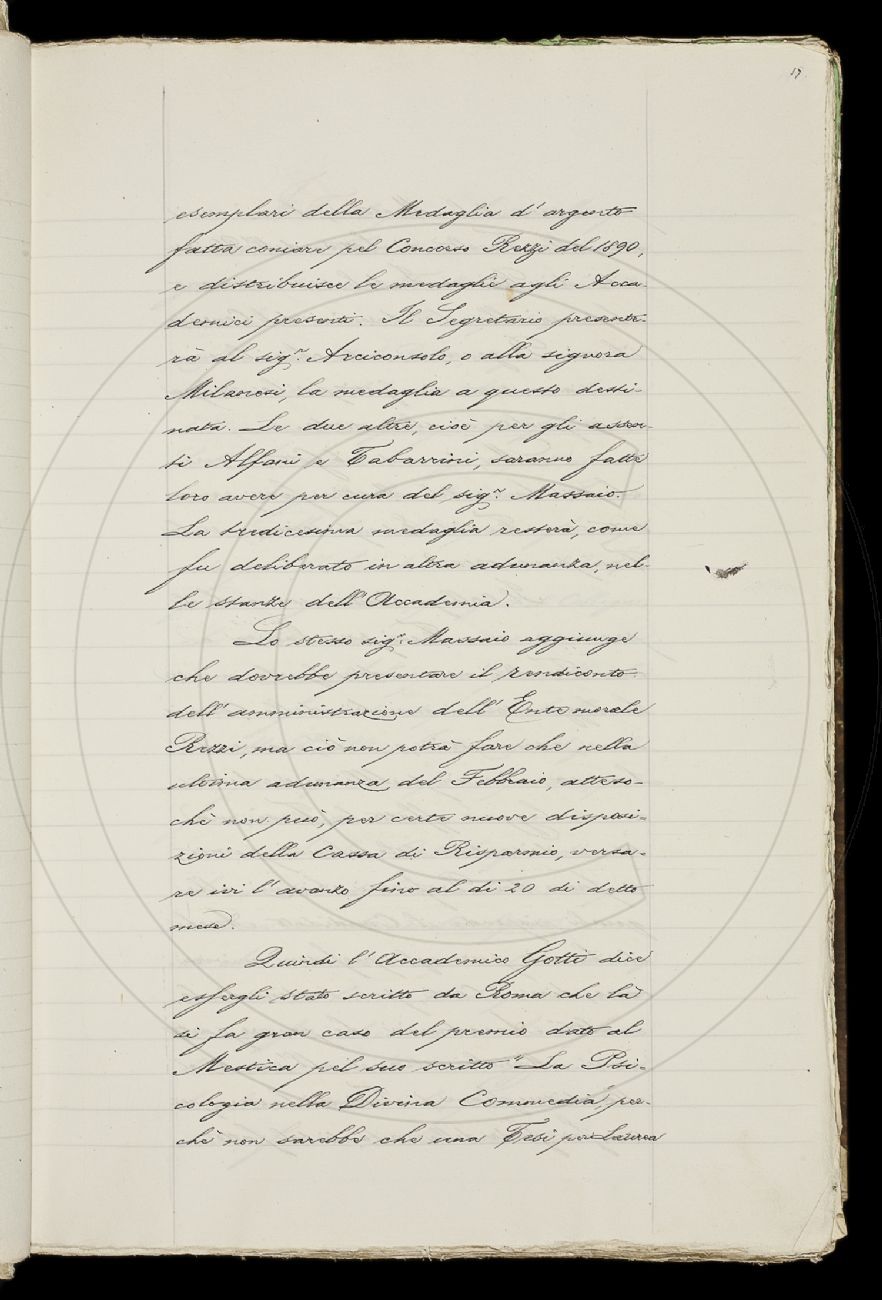 17
esemplari della Medaglia d'argento
fatta coniare pel Concorso Rezzi del 1890,
e distribuisce le medaglie agli Acca-
demici presenti. Il Segretario presente-
rà al sigr. Arciconsolo, o alla signora
Milanesi, la medaglia a questo desti-
nata. Le due altre, cioè per gli assen-
ti Alfani e Tabarrini, saranno fatte
loro avere per cura del sigr. Massaio.
La tredicesima medaglia resterà, come
fu deliberato in altra adunanza, nel-
le stanze dell'Accademia.
Lo stesso sigr. Massaio aggiunge
che dovrebbe presentare il rendiconto
dell'amministrazione dell'Ente morale
Rezzi, ma ciò non potrà fare che nella
ultima adunanza del Febbraio, atteso-
chè non può, per certe nuove disposi-
zioni della Cassa di Risparmio, versa-
re ivi l'avanzo fino al dì 20 di detto
mese.
Quindi l'Accademico Gotti dice
essergli stato scritto da Roma che là
si fa gran caso del premio dato al
Mestica pel suo scritto "La Psi-
cologia nella Divina Commedia", per-
chè non sarebbe che una Tesi per Laurea